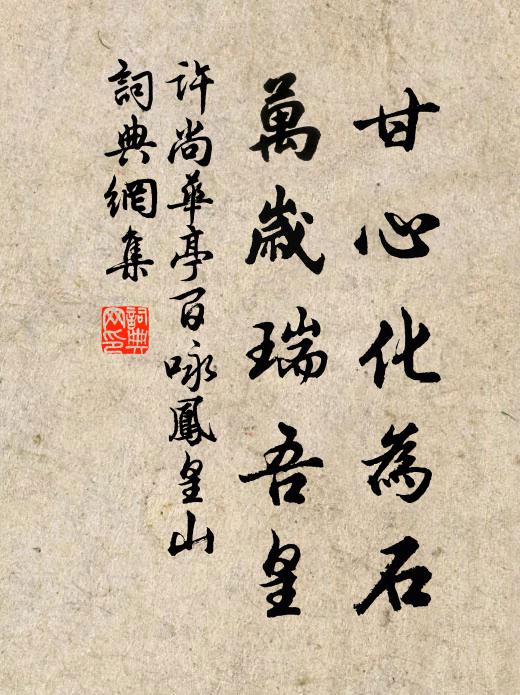 甘心化為石
萬歲瑞吾皇
許尚華亭百咏鳳皇山
詞典網集
詞典
网印